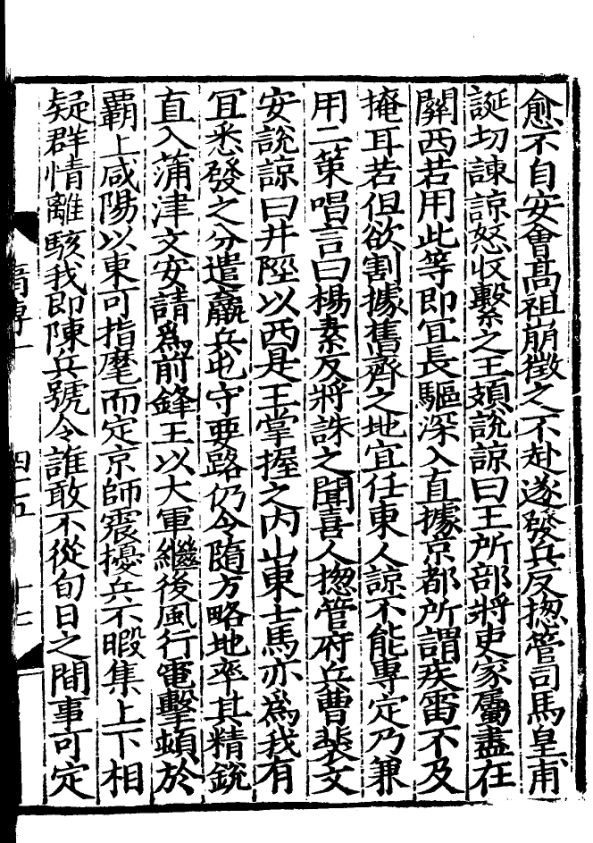 愈不自安會髙祖崩徵之不赴遂發兵反揔管司馬皇甫
誕切諫諒怒收繫之王頍說諒曰王所部將吏家屬盡在
關西若用此等即宜長驅深入直據京都所謂疾雷不及
掩耳若但欲割據舊齊之地宜任東人諒不能專定乃兼
用二策唱言曰楊素反將誅之聞喜人揔管府兵曹裴文
安說諒曰井陘以西是王掌握之内山東士馬亦爲我有
冝悉發之分遣羸兵屯守要路仍令隨方略地率其精銳
直入蒲津文安請爲前鋒王以大軍繼後風行電擊頓於
霸上咸陽以東可指麾而定京師震擾兵不暇集上下相
疑群情離駭我即陳兵號令誰敢不從旬日之間事可定
傳十
四十五
十七